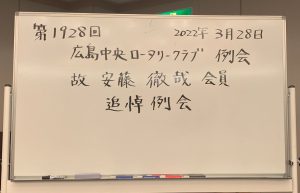 第1928回 2022年3月28日
広島中央ロータリークラブ 例会
故 安藤 徹哉 会員
追悼例会